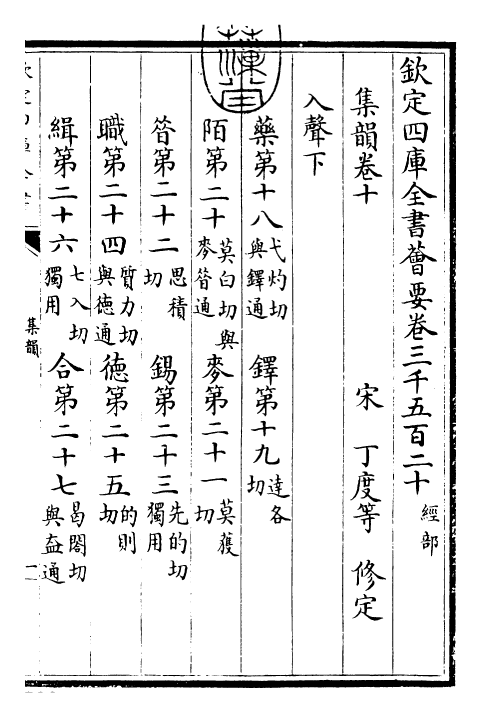 欽定四庫全書薈要卷三千五百二十 經部
集韻卷十
宋 丁度等 修定
入聲下
藥第十八弋灼切與鐸通 鐸第十九達各切
陌第二十莫白切與麥笞通 麥第二十一莫獲切
笞第二十二思積切 錫第二十三先的切獨用
職第二十四質力切與徳通 徳第二十五的則切
緝第二十六七入切獨用 合第二十七曷閤切與盍通
集韻